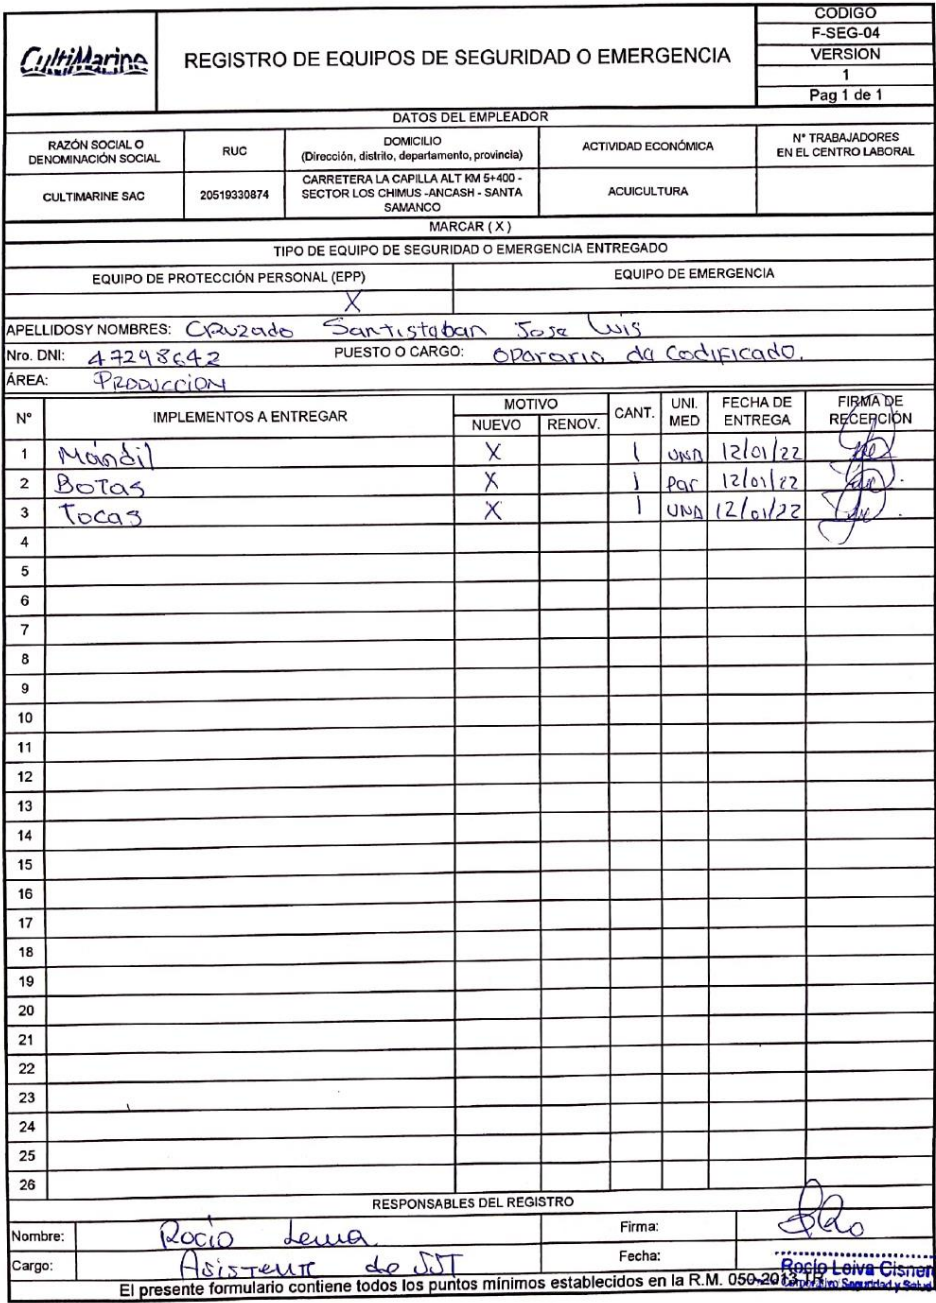 CultiMarine
REGISTRO DE EQUIPOS DE SEGURIDAD O EMERGENCIA
CODIGO
F-SEG-04
VERSION
1
Pag 1 de 1
DATOS DEL EMPLEADOR
RAZÓN SOCIAL O DENOMINACIÓN SOCIAL RUC DOMICILIO (Dirección, distrito, departamento, provincia) ACTIVIDAD ECONÓMICA N° TRABAJADORES EN EL CENTRO LABORAL
CULTIMARINE SAC 20519330874 CARRETERA LA CAPILLA ALT KM 5+400 - SECTOR LOS CHIMUS -ANCASH - SANTA SAMANCO ACUICULTURA
MARCAR ( X )
TIPO DE EQUIPO DE SEGURIDAD O EMERGENCIA ENTREGADO
EQUIPO DE PROTECCIÓN PERSONAL (EPP) EQUIPO DE EMERGENCIA
X
APELLIDOSY NOMBRES: Cruzado Santistaban Jose Luis
Nro. DNI: 47298642 PUESTO O CARGO: Operario de Codificado.
ÁREA: PRODUCCION
N° IMPLEMENTOS A ENTREGAR MOTIVO CANT. UNI. MED FECHA DE ENTREGA FIRMA DE RECEPCIÓN
NUEVO RENOV.
1 Mandil X 1 UND 12/01/22
2 Botas X 1 Par 12/01/22
3 Tocas X 1 UND 12/01/22
4
5
6
7
8
9
10
11
12
13
14
15
16
17
18
19
20
21
22
23
24
25
26
RESPONSABLES DEL REGISTRO
Nombre: Rocio Firma:
Cargo: Asistente de SST Fecha:
Rocio Leiva Cisner
El presente formulario contiene todos los puntos mínimos establecidos en la R.M. 050-2013
Seguridad y Salud